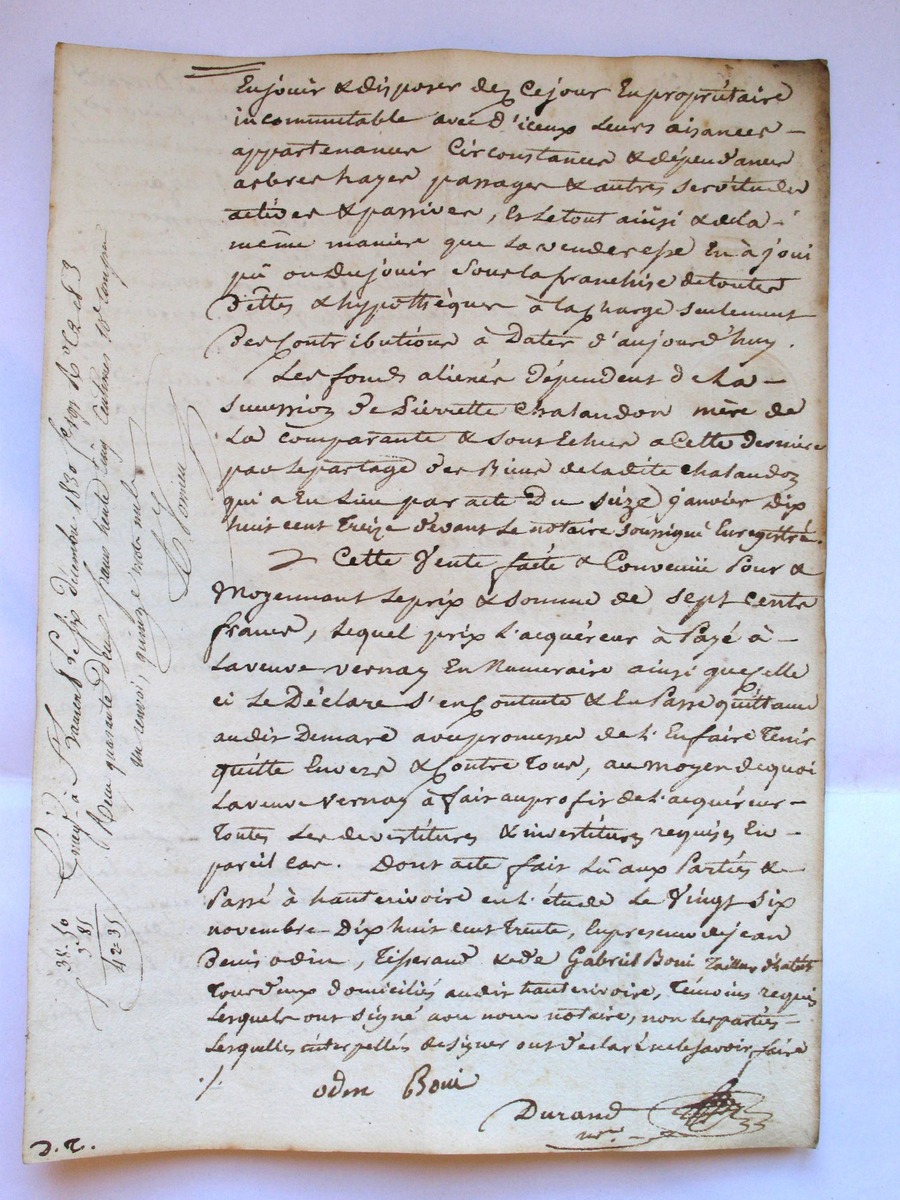 En jouir & disposer dez ce jour En propriétaire
incommutable avec d'iceux Leurs aisances –
appartenances Circonstances & dépendances
arbres hayes passages & autres servitudes
actives & passives, Et Le tout ainsi & de la
même manière que La venderesse En à joui
pû ou du jouir Sous la franchise de toutes
dettes & hypothèques à la charge seulement
des Contributions à Dater d'aujourd'huy.
Les fonds aliénés dépendent de La –
Succession de Pierrette Chalandon mère de
La comparante & sont Echus a Cette dernière
par Le partage des Biens de ladite Chalandon
qui a En Lieu par acte Du seize janvier Dix
huit cent Treize devant Le notaire soussigné Enregistré.
Cette Vente faite & Convenüe Pour &
Moyennant Le prix & somme de sept cents
francs, Lequel prix L'acquéreur à Payé à –
La veuve Vernay En Numeraire ainsi que celle
ci Le Déclare s'en Contente & En Passe quittance
audit Demare avec promesse de L'En faire Tenir
quitte Envers & Contre Tous, au moyen de quoi
La veuve Vernay à fait au profit de L'acquéreur –
Toutes Les devestitures & investitures requises En –
pareil cas. Dont acte fait Lû aux Parties &
Passé à hauterivoire en L'étude Le Vingt Six
novembre Dix huit cent Trente, En presence de jean
Denis odin, Tisserand & de Gabriel Boni Tailleur d'habits
Tous deux domiciliés audit hauterivoire, Témoins requis
Lesquels ont signé avec nous notaire, non Les parties –
Lesquelles interpellées de signer ont déclaré ne le savoir faire
./.
odin Boni
Durand
nre.
D. R.
Enregé à St Laurent Le six décembre 1830
Reçu quarante deux francs trente cinq centimes 10e compris
un renvoi, quinze mots nuls
38-50
3-85
42-35